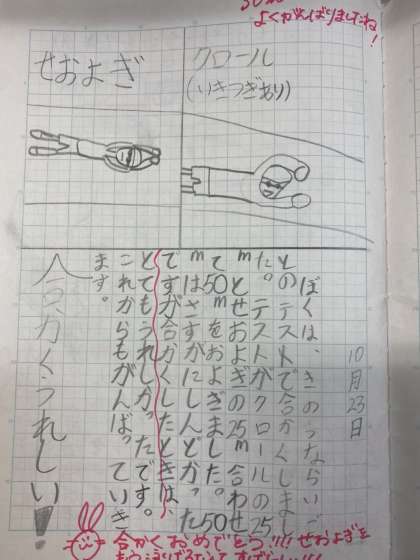 よくがんばりましたね!
せおよぎ
クロール
(いきつぎあり)
10月23日
ぼくは、きのうならいご
とのテストで合かくしまし
た。テストがクロールの25
mとせおよぎの25m合わせ
て50mをおよぎました。50
mはさすがにしんどかった
ですが合かくしたときは、
とてもうれしかったです。
これからもがんばっていき
ます。
合かくうれしい!
合かくおめでとう!!! せおよぎを